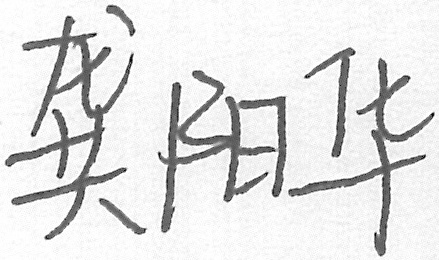 龚阳华